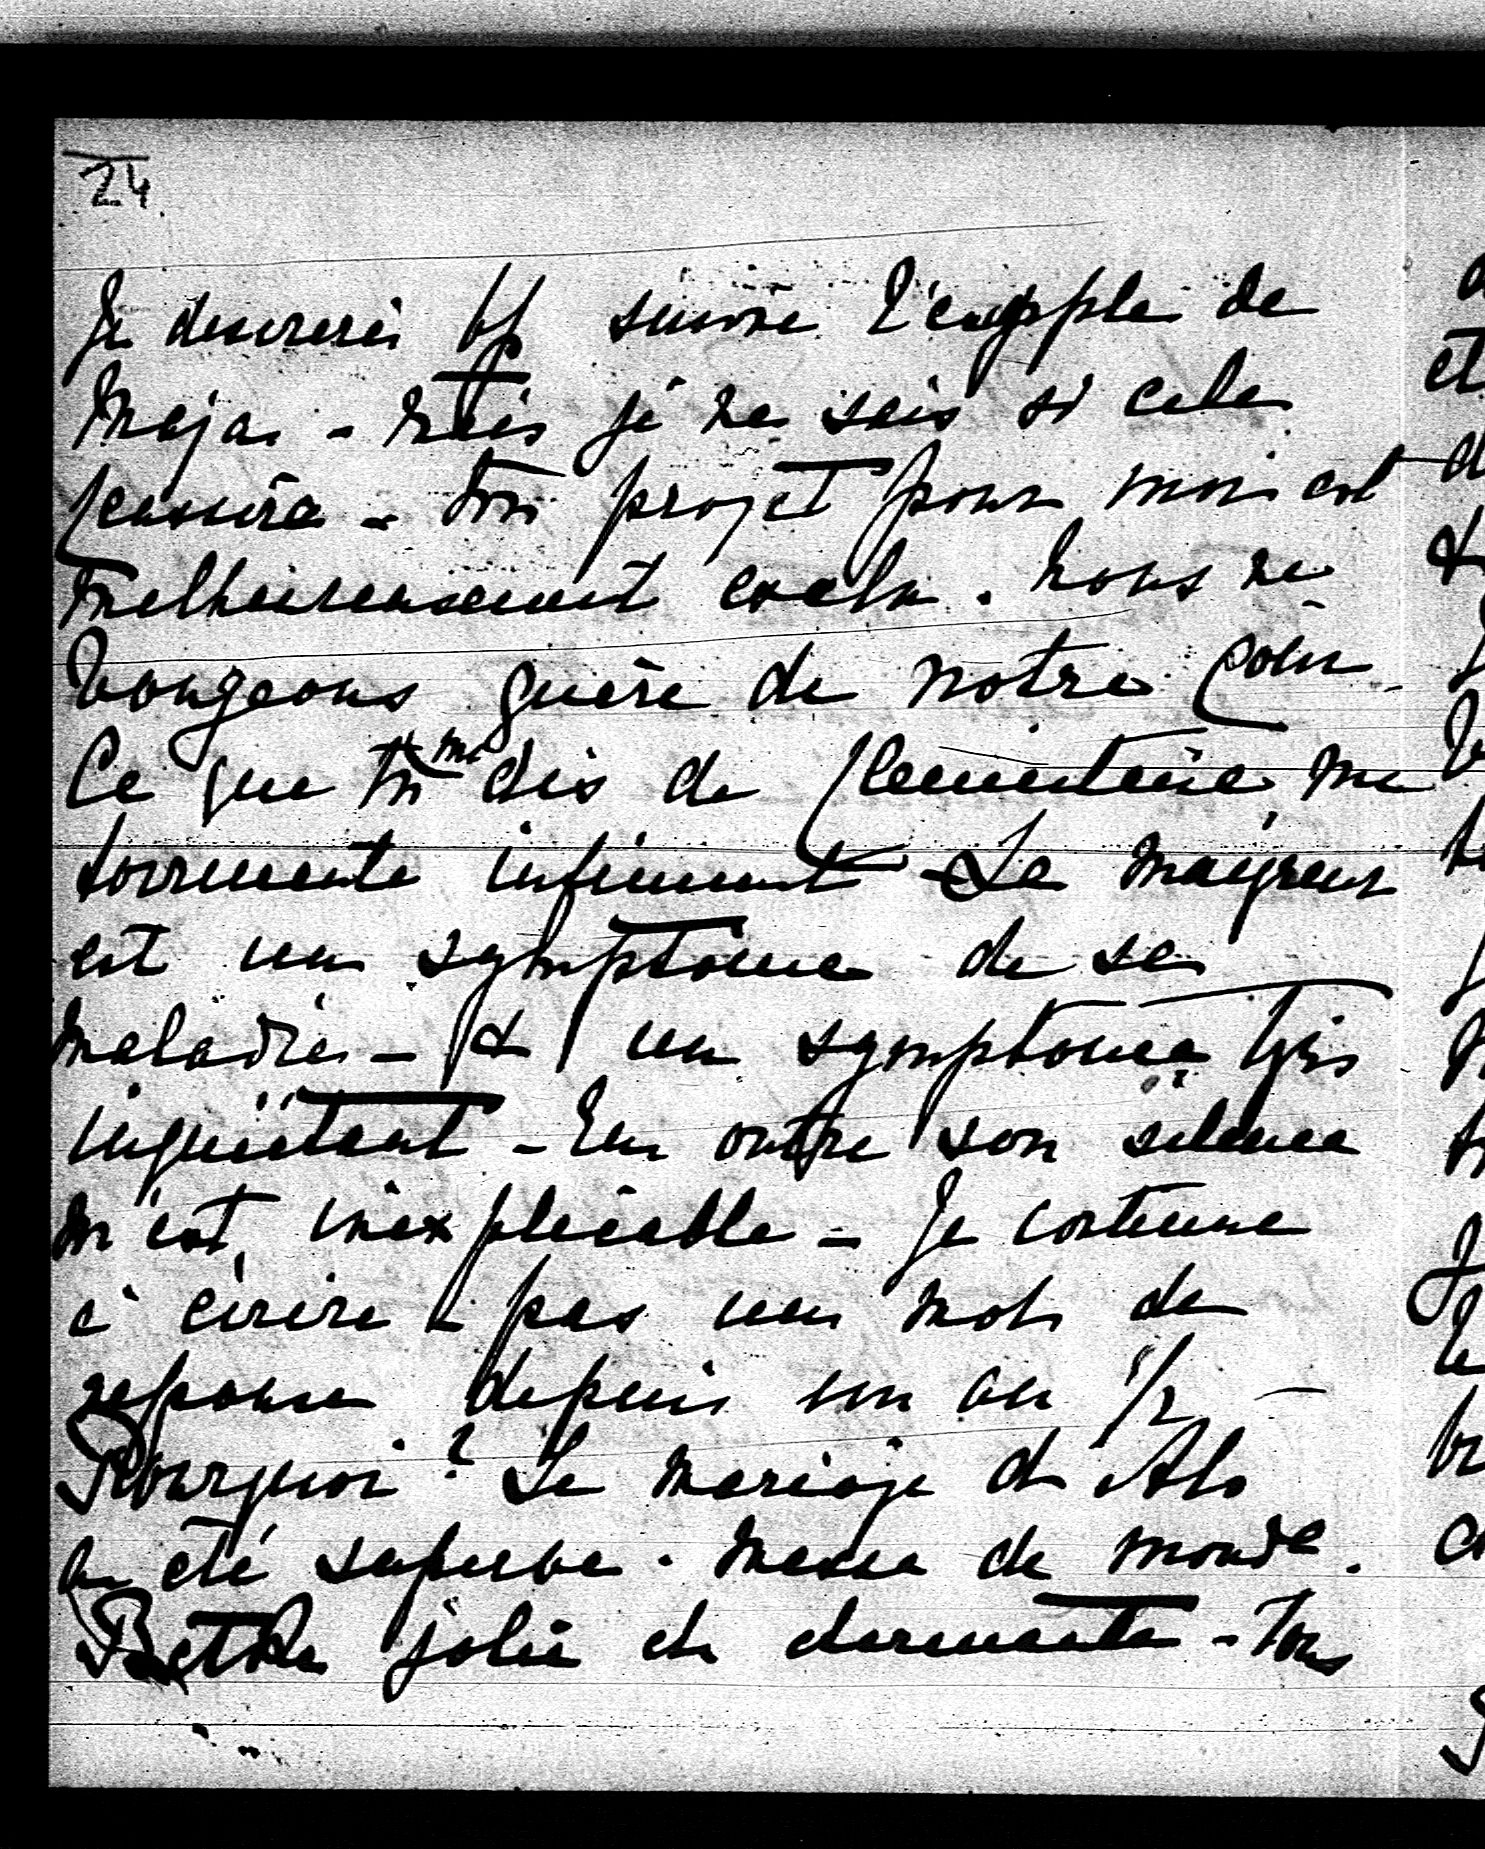 24
Je desirerais bp suivre l'exemple de
Maja - mais je ne sais si cela
reussira - ton projet pour moi est
malheureusement exclu. Nous ne
bougeons guère de notre coin.
Ce que tu me dis de Clementine me
tourmente infiniment - Sa maigreur
est un symptome de sa
maladie - & un symptome très
inquiétant - En outre son silence
m'est inexplicable - Je continue
à écrire - pas un mot de
reponse depuis un an 1/2 -
Pourquoi? Le mariage d'Alo
a été superbe. Masse de monde.
Betka jolie et charmante - Tous